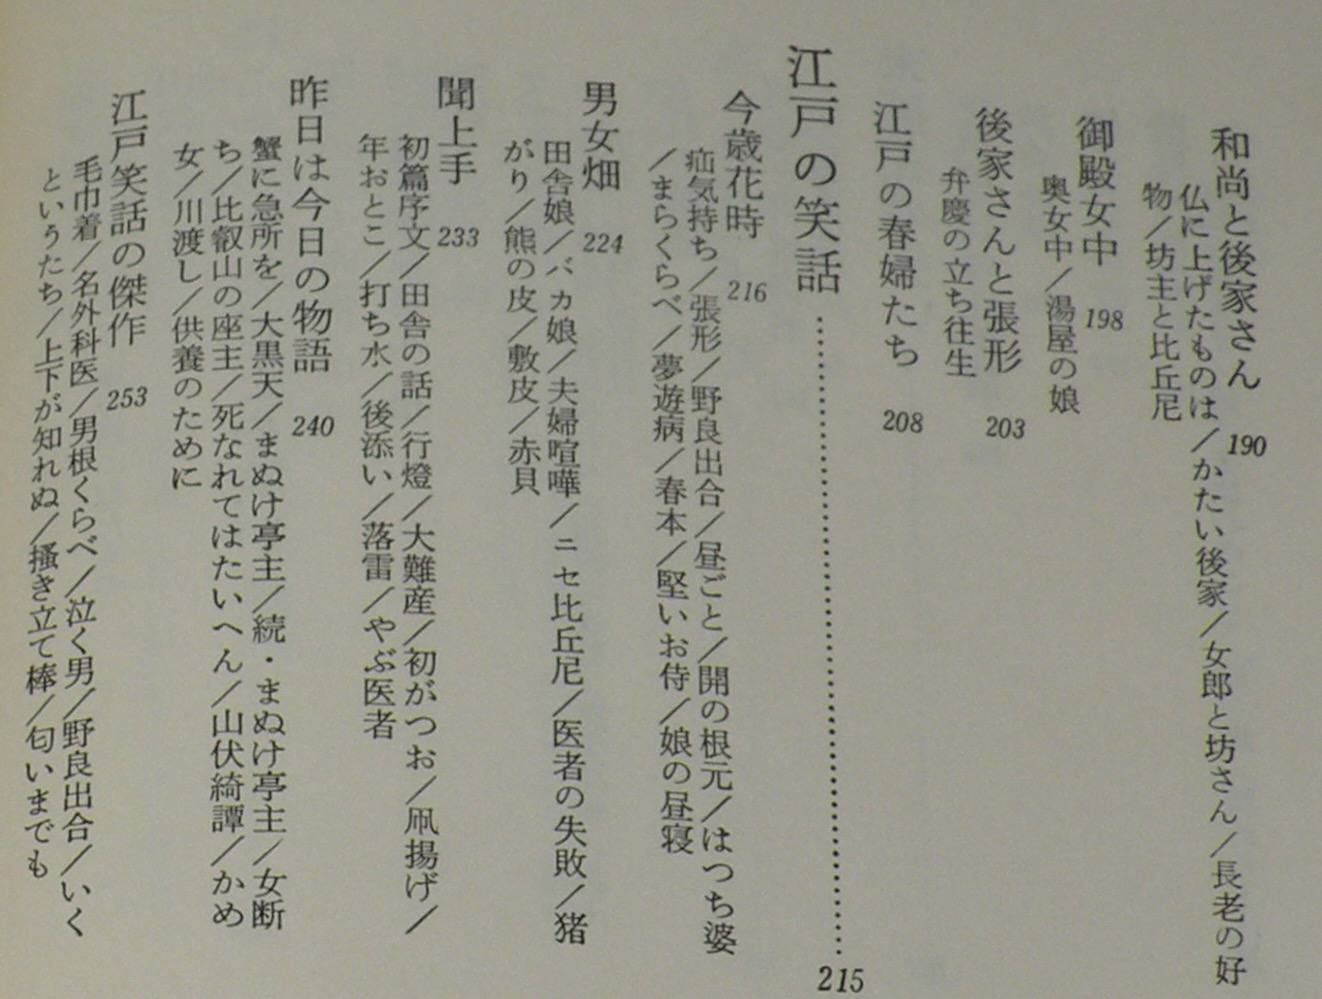 和尚と後家さん 190
仏に上げたものは／かたい後家／女郎と坊さん／長老の好
物／坊主と比丘尼
御殿女中 198
奥女中／湯屋の娘
後家さんと張形 203
弁慶の立ち往生
江戸の春婦たち 208
江戸の笑話……………………………215
今歳花時 216
疝気持ち／張形／野良出合／昼ごと／開の根元／はつち婆
／まらくらべ／夢遊病／春本／堅いお侍／娘の昼寝
男女畑 224
田舎娘／バカ娘／夫婦喧嘩／ニセ比丘尼／医者の失敗／猪
がり／熊の皮／敷皮／赤貝
聞上手 233
初篇序文／田舎の話／行燈／大難産／初がつお／凧揚げ／
年おとこ／打ち水／後添い／落雷／やぶ医者
昨日は今日の物語 240
蟹に急所を／大黒天／まぬけ亭主／続・まぬけ亭主／女断
ち／比叡山の座主／死なれてはたいへん／山伏綺譚／かめ
女／川渡し／供養のために
江戸笑話の傑作 253
毛巾着／名外科医／男根くらべ／泣く男／野良出合／いく
というたち／上下が知れぬ／掻き立て棒／匂いまでも